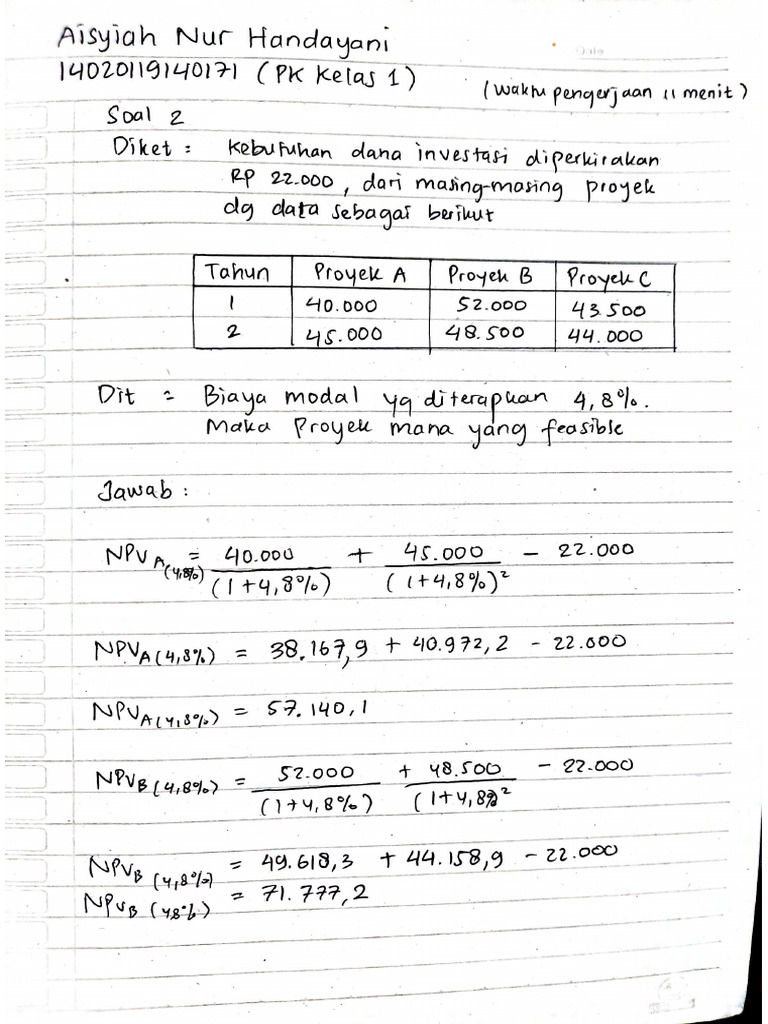 Aisyiah Nur Handayani
14020119140171 (PK Kelas 1)
(Waktu pengerjaan 11 menit)
Soal 2
Diket : Kebutuhan dana investasi diperkirakan
RP 22.000, dari masing-masing proyek
dg data sebagai berikut
Tahun Proyek A Proyek B Proyek C
1 40.000 52.000 43.500
2 45.000 48.500 44.000
Dit : Biaya modal yg diterapkan 4,8%.
Maka Proyek mana yang feasible
Jawab :
NPV A(4,8%) = 40.000 / (1+4,8%) + 45.000 / (1+4,8%)² - 22.000
NPVA(4,8%) = 38.167,9 + 40.972,2 - 22.000
NPVA(4,8%) = 57.140,1
NPVB(4,8%) = 52.000 / (1+4,8%) + 48.500 / (1+4,8%)² - 22.000
NPVB (4,8%) = 49.618,3 + 44.158,9 - 22.000
NPVB (48%) = 71.777,2